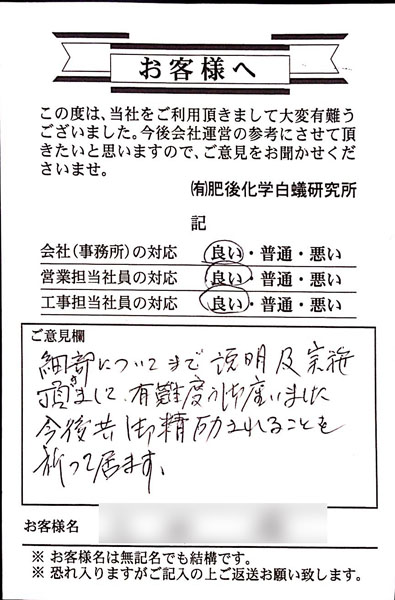 お客様へ
この度は、当社をご利用頂きまして大変有難う
ございました。今後会社運営の参考にさせて頂
きたいと思いますので、ご意見をお聞かせくだ
さいませ。
㈲肥後化学白蟻研究所
記
会社(事務所)の対応 良い・普通・悪い
営業担当社員の対応 良い・普通・悪い
工事担当社員の対応 良い・普通・悪い
ご意見欄
細部についてまで説明及実施
頂きまして、有難度う御座いました
今後共御精励されることを
祈って居ます、
お客様名
※ お客様名は無記名でも結構です。
※ 恐れ入りますがご記入の上ご返送お願い致します。